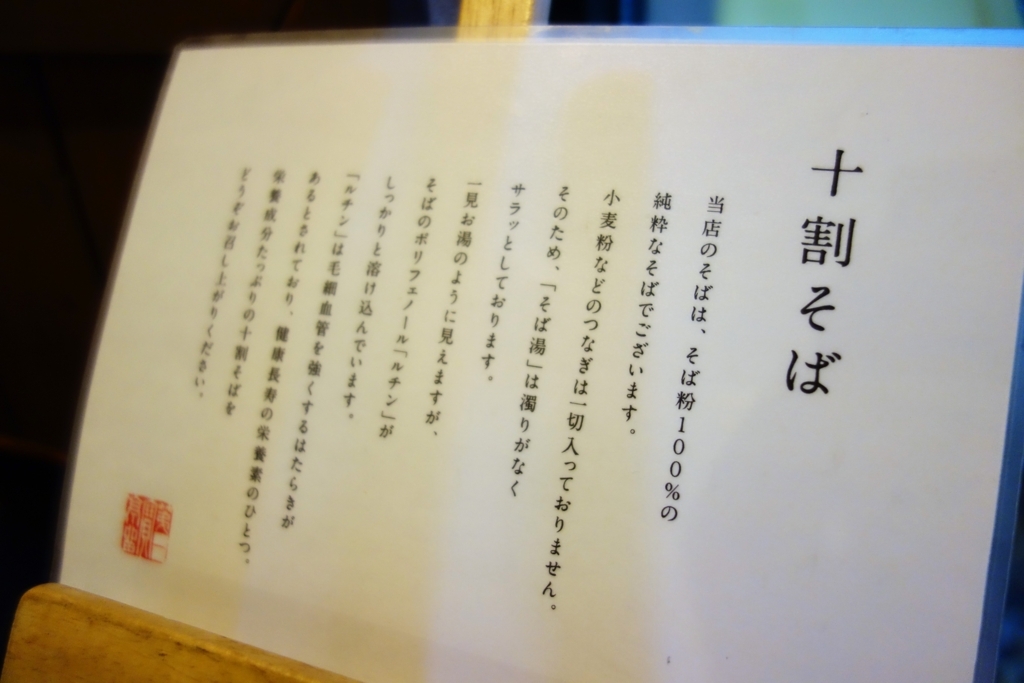 十割そば
当店のそばは、そば粉100%の
純粋なそばでございます。
小麦粉などのつなぎは一切入っておりません。
そのため、「そば湯」は濁りがなく
サラッとしております。
一見お湯のように見えますが、
そばのポリフェノール「ルチン」が
しっかりと溶け込んでいます。
「ルチン」は毛細血管を強くするはたらきが
あるとされており、健康長寿の栄養素のひとつ。
栄養成分たっぷりの十割そばを
どうぞお召し上がりください。